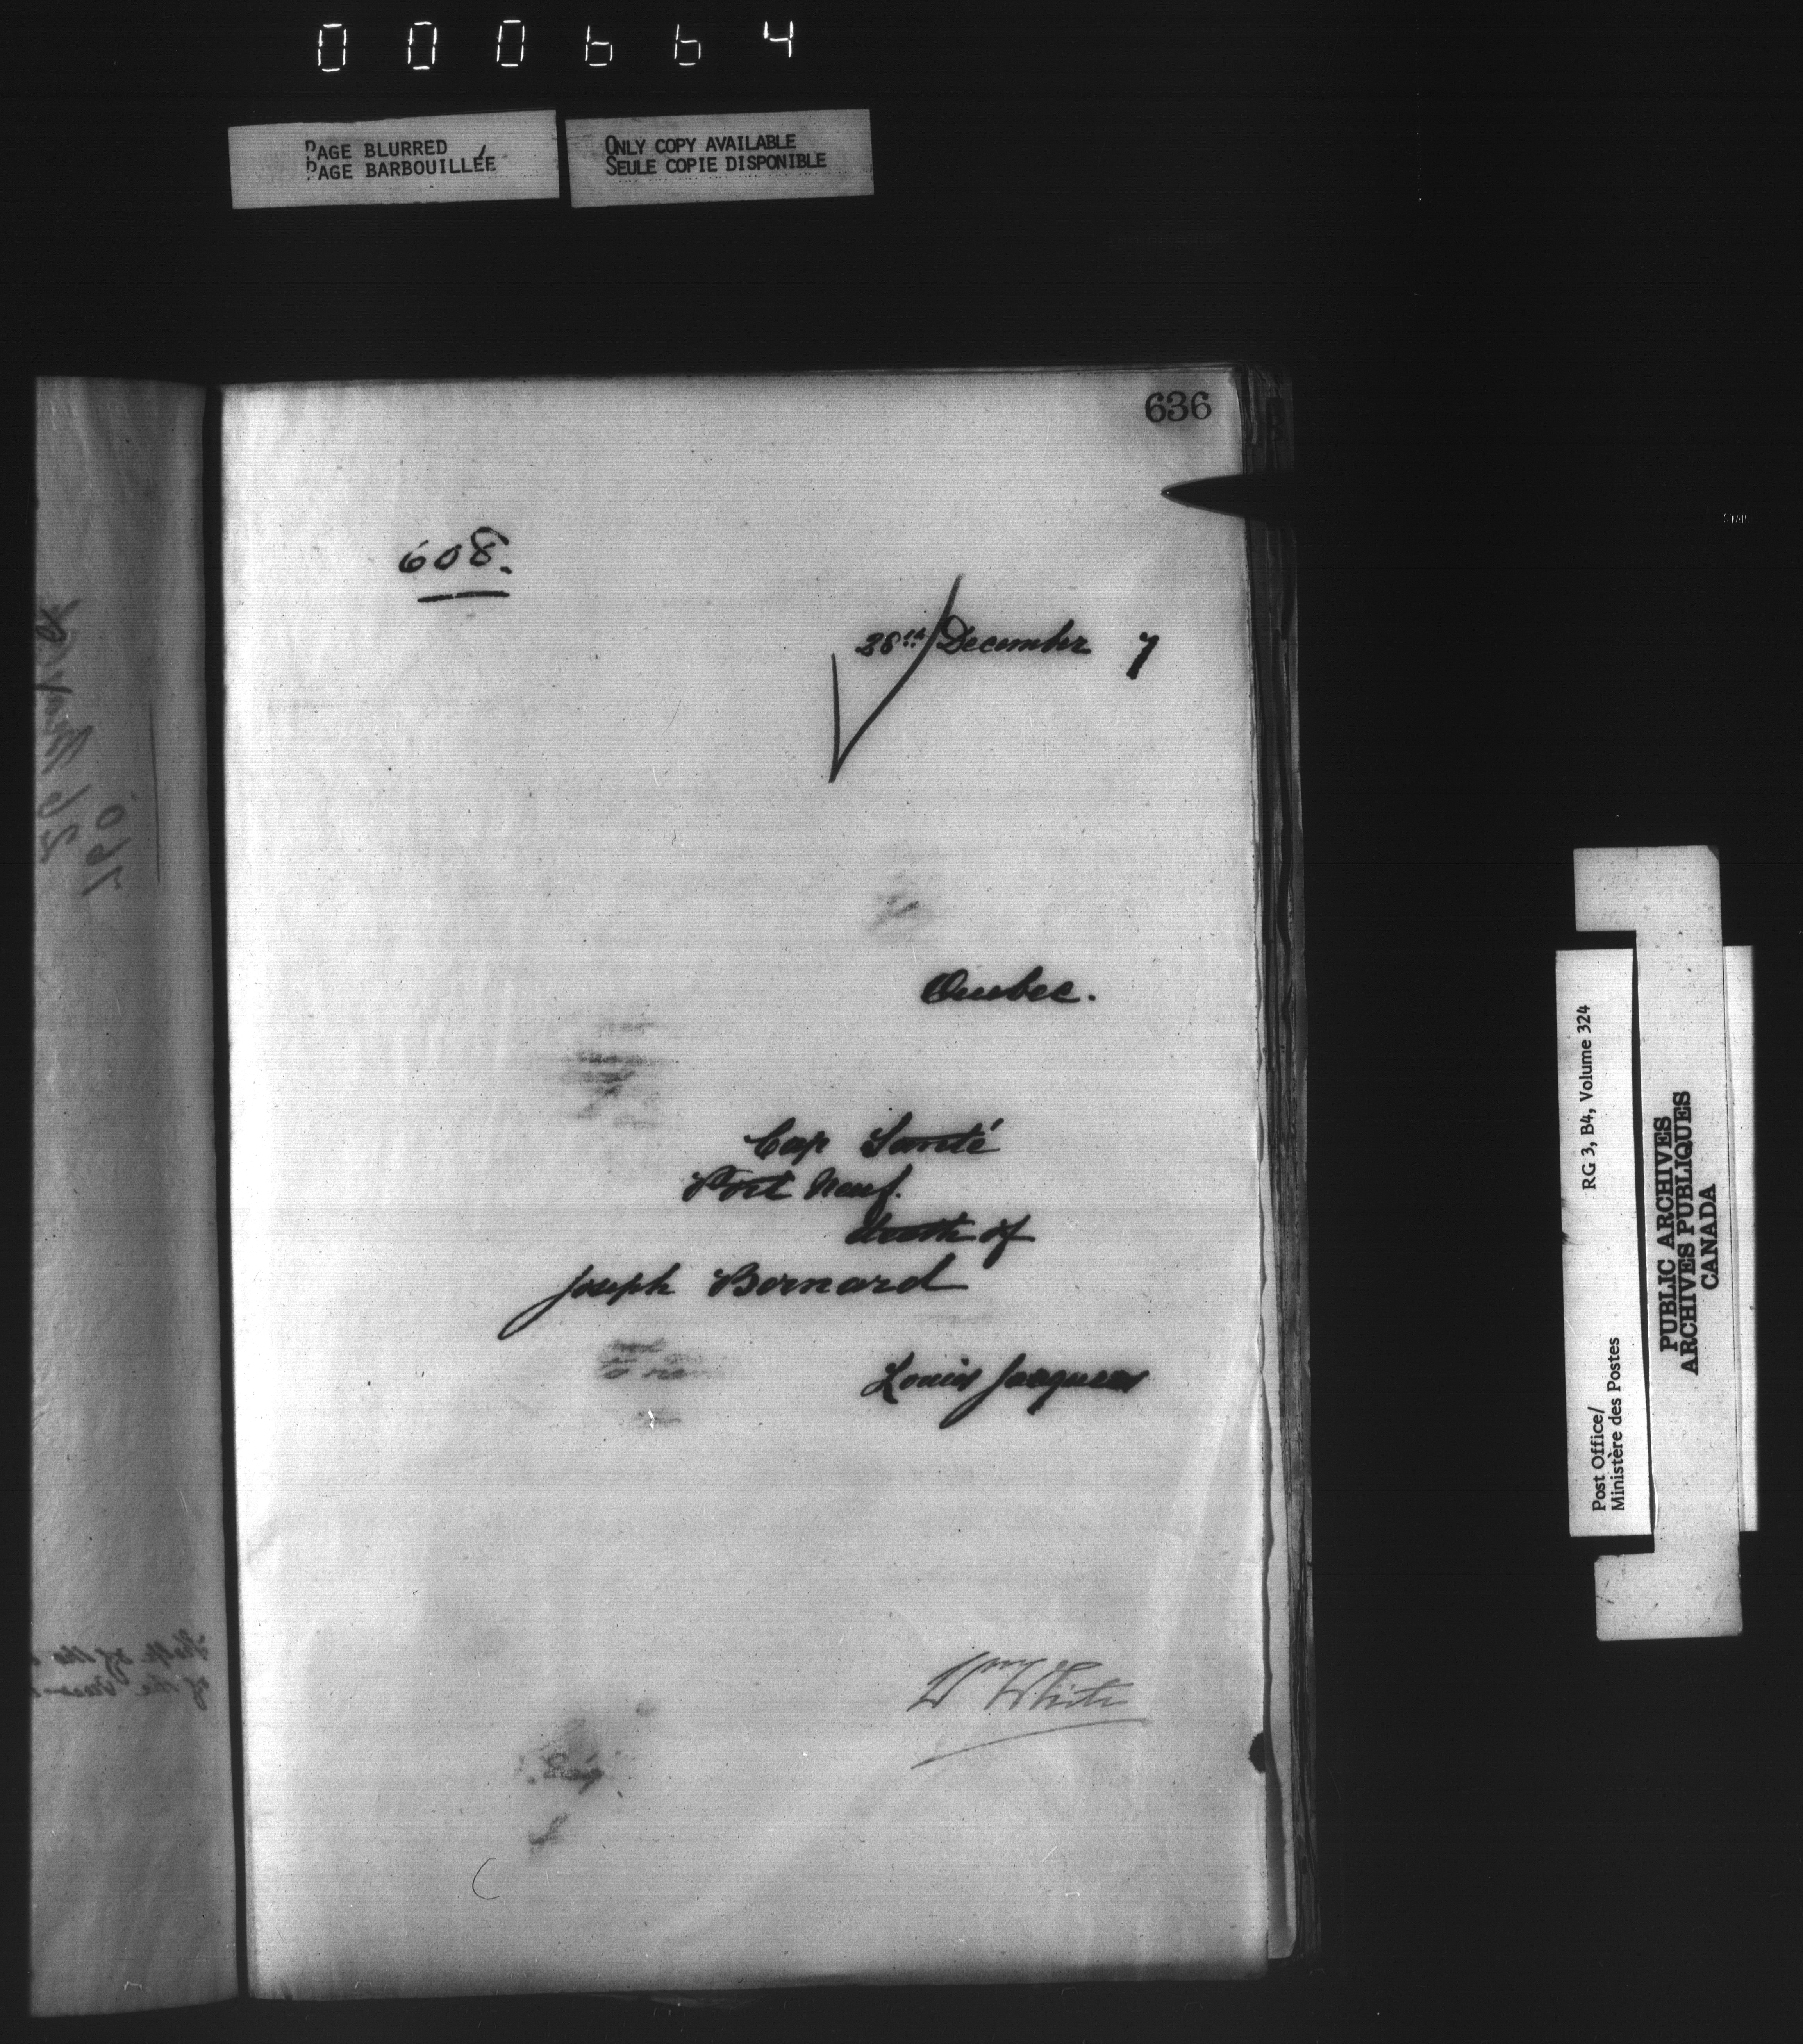 000664
PAGE BLURRED
PAGE BARBOUILLÉE
ONLY COPY AVAILABLE
SEULE COPIE DISPONIBLE
636
608.
28th December 7
Quebec.
Cap Santé
Port Neuf.
death of
Joseph Bernard
Louis Jacques
Wm White
RG 3, B4, Volume 324
Post Office/
Ministère des Postes
PUBLIC ARCHIVES
ARCHIVES PUBLIQUES
CANADA